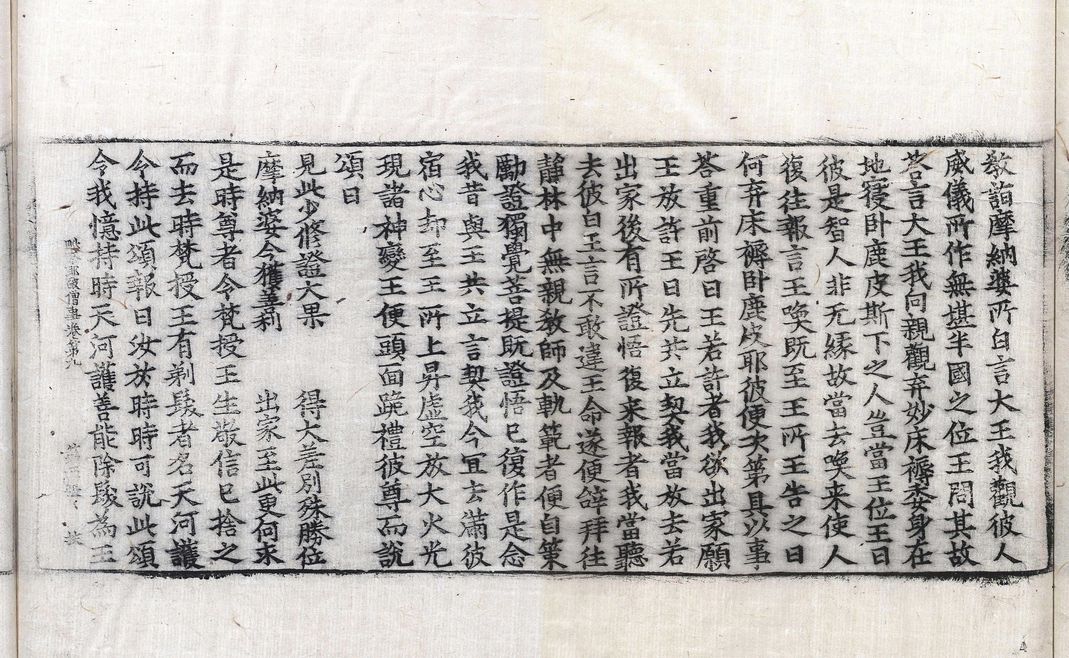 敎詣摩納婆所白言大王我觀彼人
威儀所作無堪半國之位王問其故
荅言大王我向親觀弃妙床褥委身在
地寢卧鹿皮斯下之人豈當王位王曰
彼是智人非无緣故當去喚来使人
復往報言王喚既至王所王告之曰
何弃床褥卧鹿皮耶彼便次第具以事
荅重前啓曰王若許者我欲出家願
王放許王曰先共立契我當放去若
出家後有所證悟復来報者我當聽
去彼白王言不敢違王命遂便辝拜往
靜林中無親敎師及軌範者便自策
勵證獨覺菩提既證悟已復作是念
我昔與王共立言契我今冝去滿彼
宿心却至王所上昇虛空放大火光
現諸神變王便頭面跪禮彼尊而說
頌曰
見此少修證大果 得大差別殊勝位
摩納婆今獲善利 出家至此更何求
是時尊者令梵授王生敬信已捨之
而去時梵授王有剃髮者名天河護
令持此頌報曰汝於時時可說此頌
令我憶持時天河護善能除髮為王
僧事卷第九